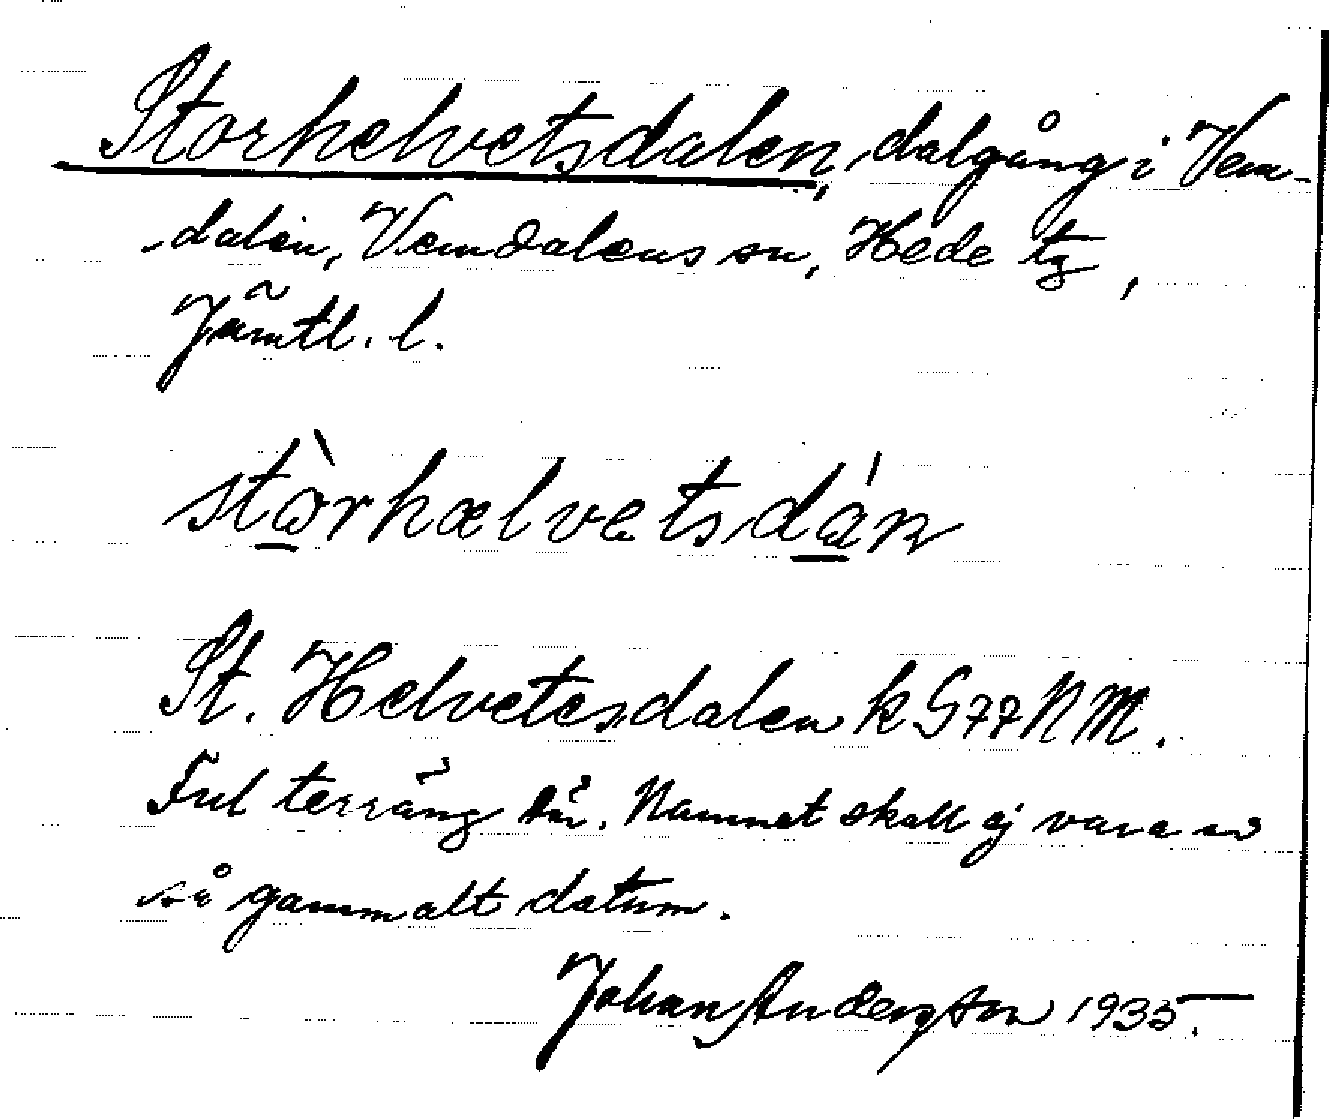 Storhelvetsdalen, dalgång i Vem-
dalen, Vemdalens sn, Hede tg,
Jämtl. l.
stòrhælvetsdán
St. Helvetesdalen k G77NM.
Ful terräng här. Namnet skall ej vara av
så gammalt datum.
Johan Anderson 1935.